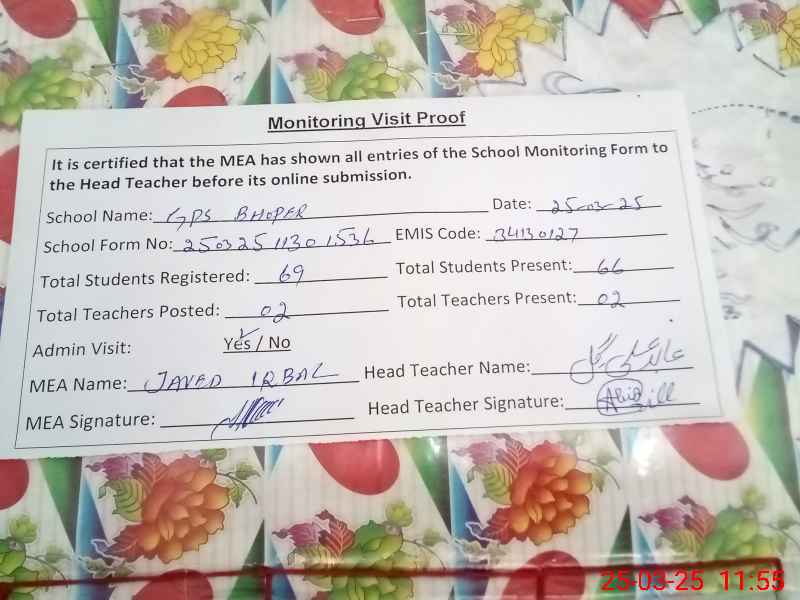 Monitoring Visit Proof
It is certified that the MEA has shown all entries of the School Monitoring Form to
the Head Teacher before its online submission.
School Name: GPS BHOPER Date: 25-03-25
School Form No: 25032511301536 EMIS Code: 34130127
Total Students Registered: 69 Total Students Present: 66
Total Teachers Posted: 02 Total Teachers Present: 02
Admin Visit: Yes / No
MEA Name: JAVED IQBAL Head Teacher Name: عابد علی گل
MEA Signature: Head Teacher Signature: Abid Gill
25-03-25 11:55